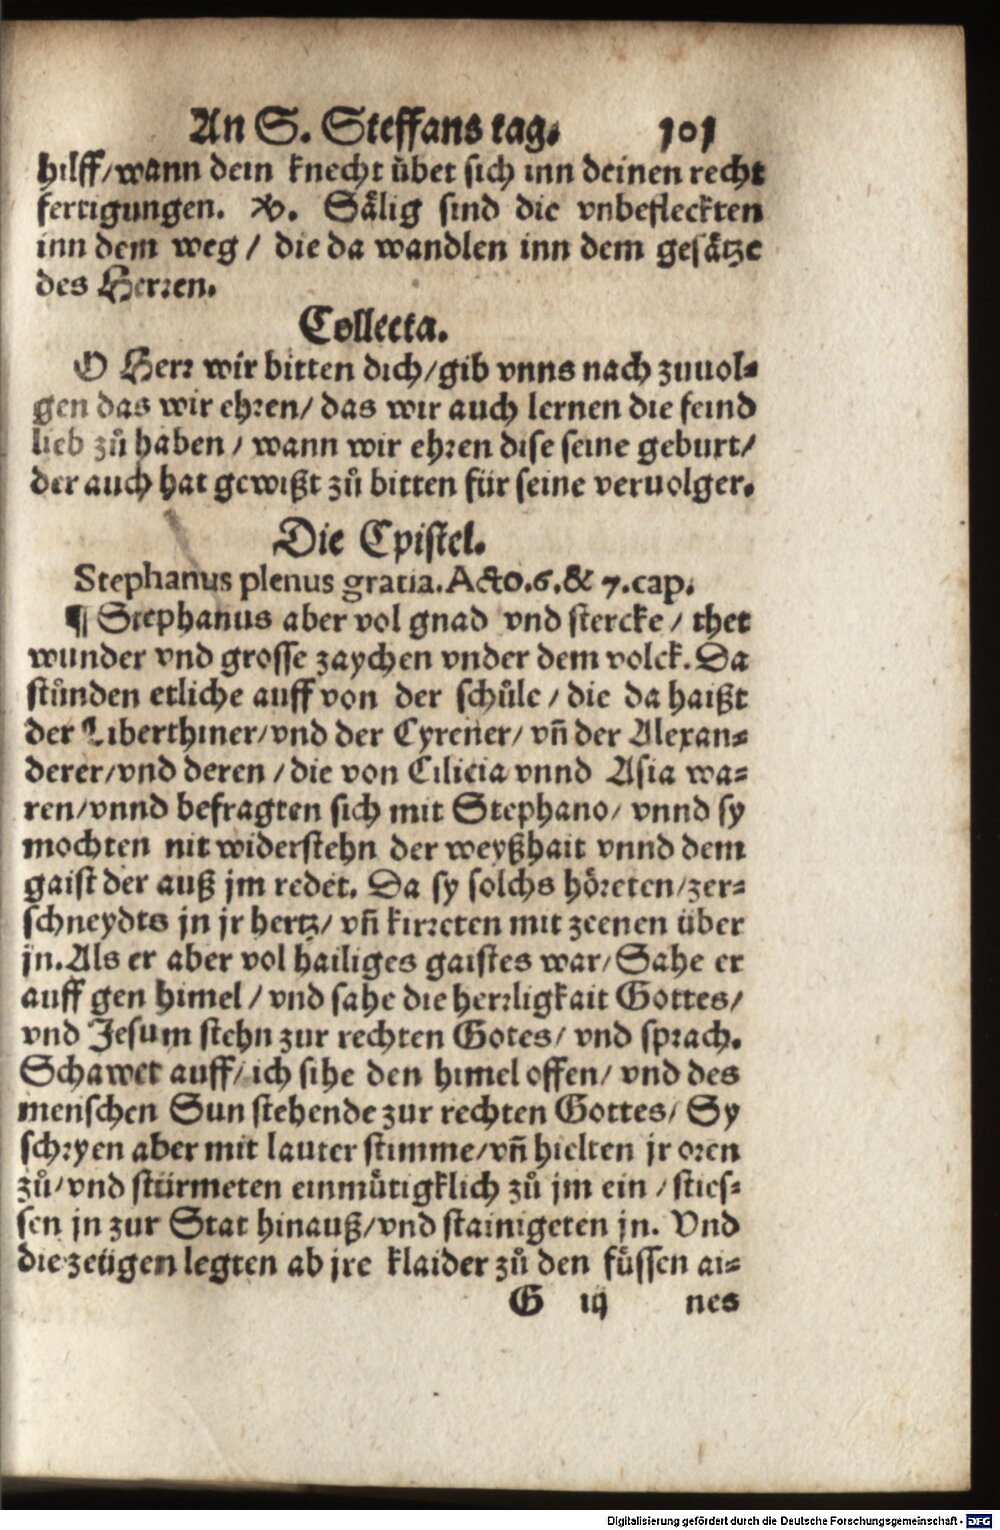 An S. Steffans tag. 101
hilff/wann dein knecht übet sich inn deinen recht
fertigungen. V. Sälig sind die vnbefleckten
inn dem weg / die da wandlen inn dem gesätze
des Herren.
Collecta.
O Herr wir bitten dich/gib vnns nach zuuol⸗
gen das wir ehren/ das wir auch lernen die feind
lieb zů haben / wann wir ehren dise seine geburt/
der auch hat gewißt zů bitten für seine veruolger.
Die Epistel.
Stephanus plenus gratia. Acto.6.& 7.cap.
¶ Stephanus aber vol gnad vnd stercke / thet
wunder vnd grosse zaychen vnder dem volck. Da
stůnden etliche auff von der schůle / die da haißt
der Liberthiner/vnd der Cyrener/ vñ der Alexan⸗
derer/vnd deren / die von Cilicia vnnd Asia wa⸗
ren/vnnd befragten sich mit Stephano/ vnnd sy
mochten nit widerstehn der weyßhait vnnd dem
gaist der auß jm redet. Da sy solchs höreten/zer⸗
schneydts jn jr hertz/ vñ kirreten mit zeenen über
jn. Als er aber vol hailiges gaistes war/ Sahe er
auff gen himel / vnd sahe die herrligkait Gottes/
vnd Jesum stehn zur rechten Gotes/ vnd sprach.
Schawet auff/ ich sihe den himel offen/ vnd des
menschen Sun stehende zur rechten Gottes/ Sy
schryen aber mit lauter stimme/vñ hielten jr oren
zů/vnd stürmeten einmütigklich zů jm ein / sties⸗
sen jn zur Stat hinauß/vnd stainigeten jn. Vnd
die zeügen legten ab jre klaider zů den füssen ai⸗
G iij nes
Digitalisierung gefördert durch die Deutsche Forschungsgemeinschaft - DFG